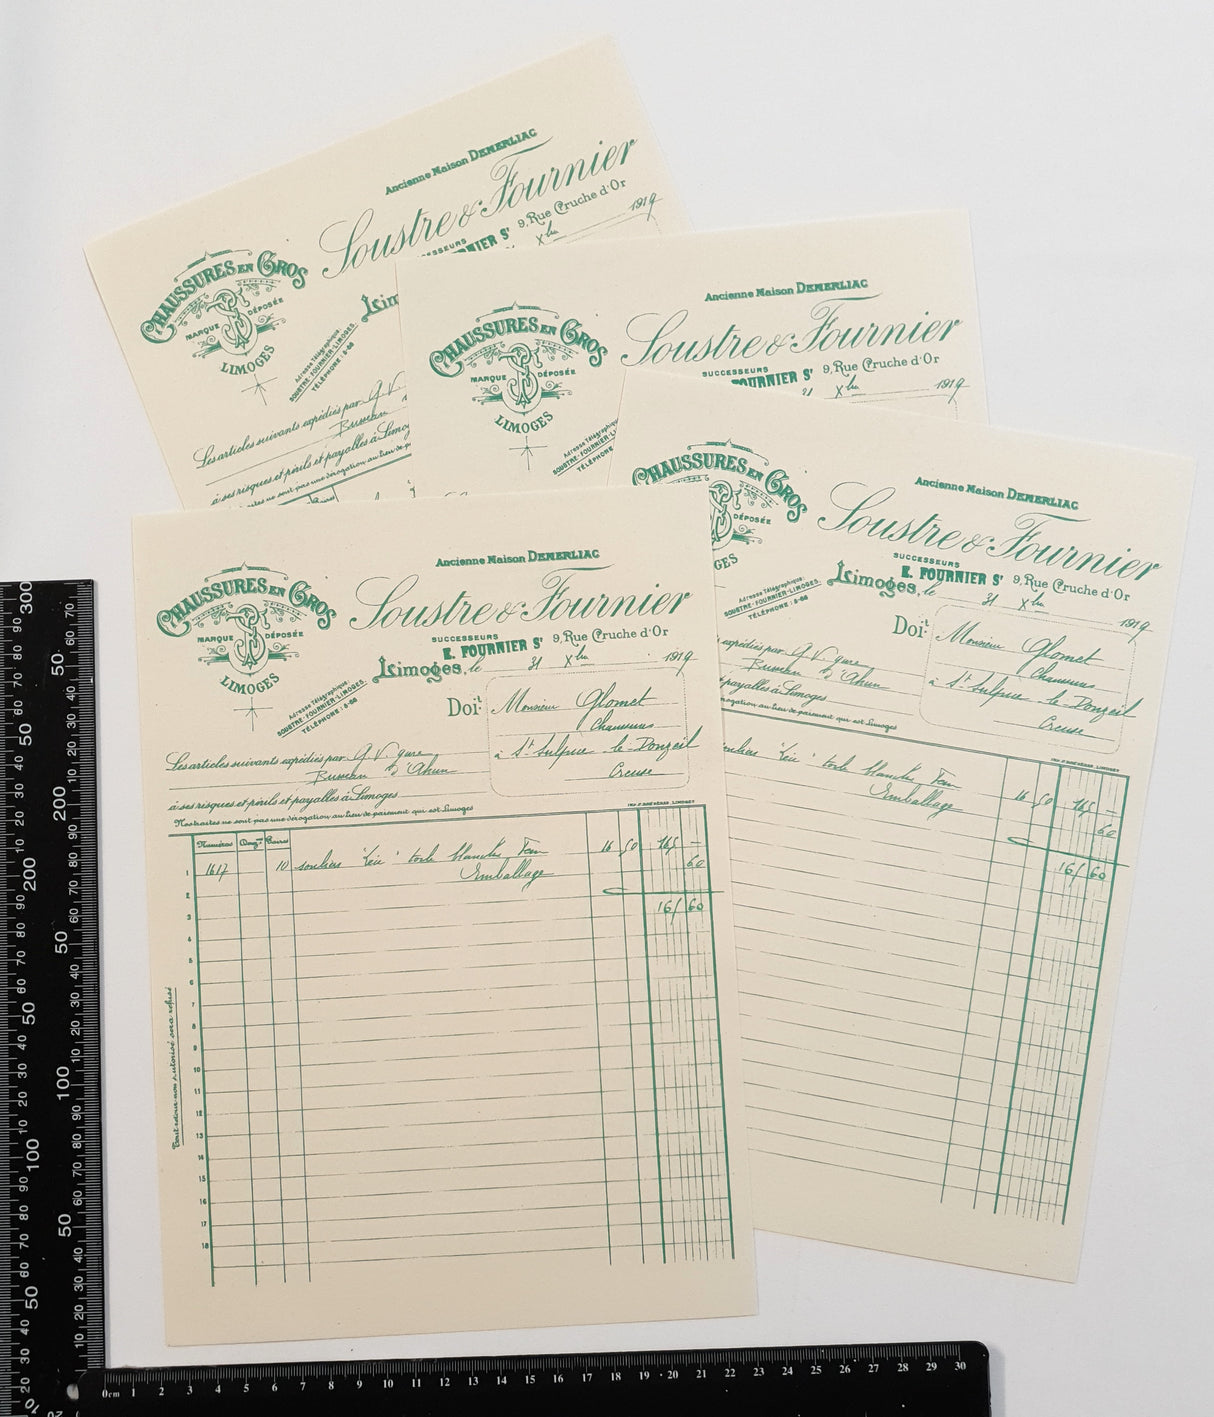 Ancienne Maison DEMERLIAC
Soustre & Fournier
SUCCESSEURS
9, Rue Cruche d'Or
1919
CHAUSSURES EN GROS
MARQUE DÉPOSÉE
LIMOGES
Adresse Télégraphique:
SOUSTRE-FOURNIER-LIMOGES
TÉLÉPHONE: 5-66
Les articles suivants expédiés par G. V. gare
Bureau
à ses risques et périls et payables à Limoges
Ancienne Maison DEMERLIAC
Soustre & Fournier
SUCCESSEURS
E. FOURNIER Sr 9, Rue Cruche d'Or
31 Xbre 1919
CHAUSSURES EN GROS
MARQUE DÉPOSÉE
LIMOGES
Adresse Télégraphique
SOUSTRE-FOURNIER
TÉLÉPHONE
Ancienne Maison DEMERLIAC
Soustre & Fournier
SUCCESSEURS
E. FOURNIER Sr 9, Rue Cruche d'Or
Limoges, le 31 Xbre 1919
CHAUSSURES EN GROS
DÉPOSÉE
Adresse Télégraphique:
SOUSTRE-FOURNIER-LIMOGES.
TÉLÉPHONE: 5-66
Doit: Monsieur Glomet
Chaussures
à St Sulpice le Donzeil
Creuse
G. V. gare
Bureau d'Ahun
payables à Limoges
dérogation au lieu de paiement qui est Limoges
toile blanche
Emballage
16 50 165 —
60
165 60
Ancienne Maison DEMERLIAC
Soustre & Fournier
SUCCESSEURS
E. FOURNIER Sr 9, Rue Cruche d'Or
Limoges, le 31 Xbre 1919
CHAUSSURES EN GROS
MARQUE DÉPOSÉE
LIMOGES
Adresse Télégraphique:
SOUSTRE-FOURNIER-LIMOGES.
TÉLÉPHONE: 5-66
Doit: Monsieur Glomet
Chaussures
à St Sulpice le Donzeil
Creuse
Les articles suivants expédiés par G. V. gare
Bureau d'Ahun
à ses risques et périls et payables à Limoges
Nos traites ne sont pas une dérogation au lieu de paiement qui est Limoges
Numéros Paires
1617 10 souliers toile blanche 16 50 165 —
Emballage 60
165 60
1
2
3
4
5
6
7
8
9
10
11
12
13
14
15
16
17
18
Tout retour non autorisé sera refusé
0cm 1 2 3 4 5 6 7 8 9 10 11 12 13 14 15 16 17 18 19 20 21 22 23 24 25 26 27 28 29 30